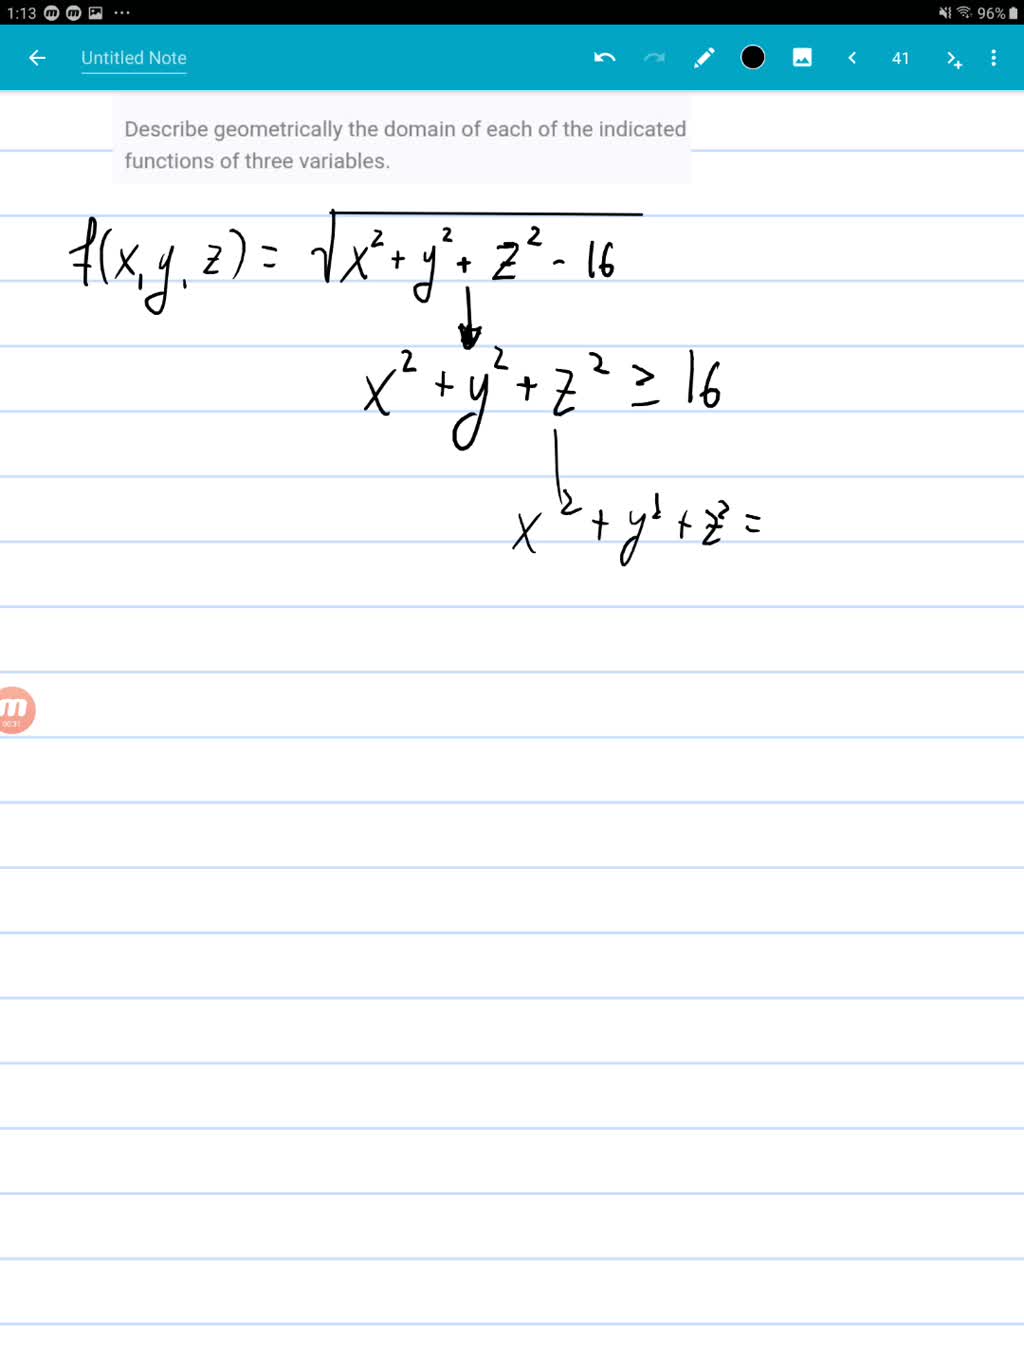 1:13 96%
Untitled Note 41
Describe geometrically the domain of each of the indicated
functions of three variables.
f(x, y, z) = √(x² + y² + z² - 16)
x² + y² + z² ≥ 16
x² + y² + z² =
m
00:31